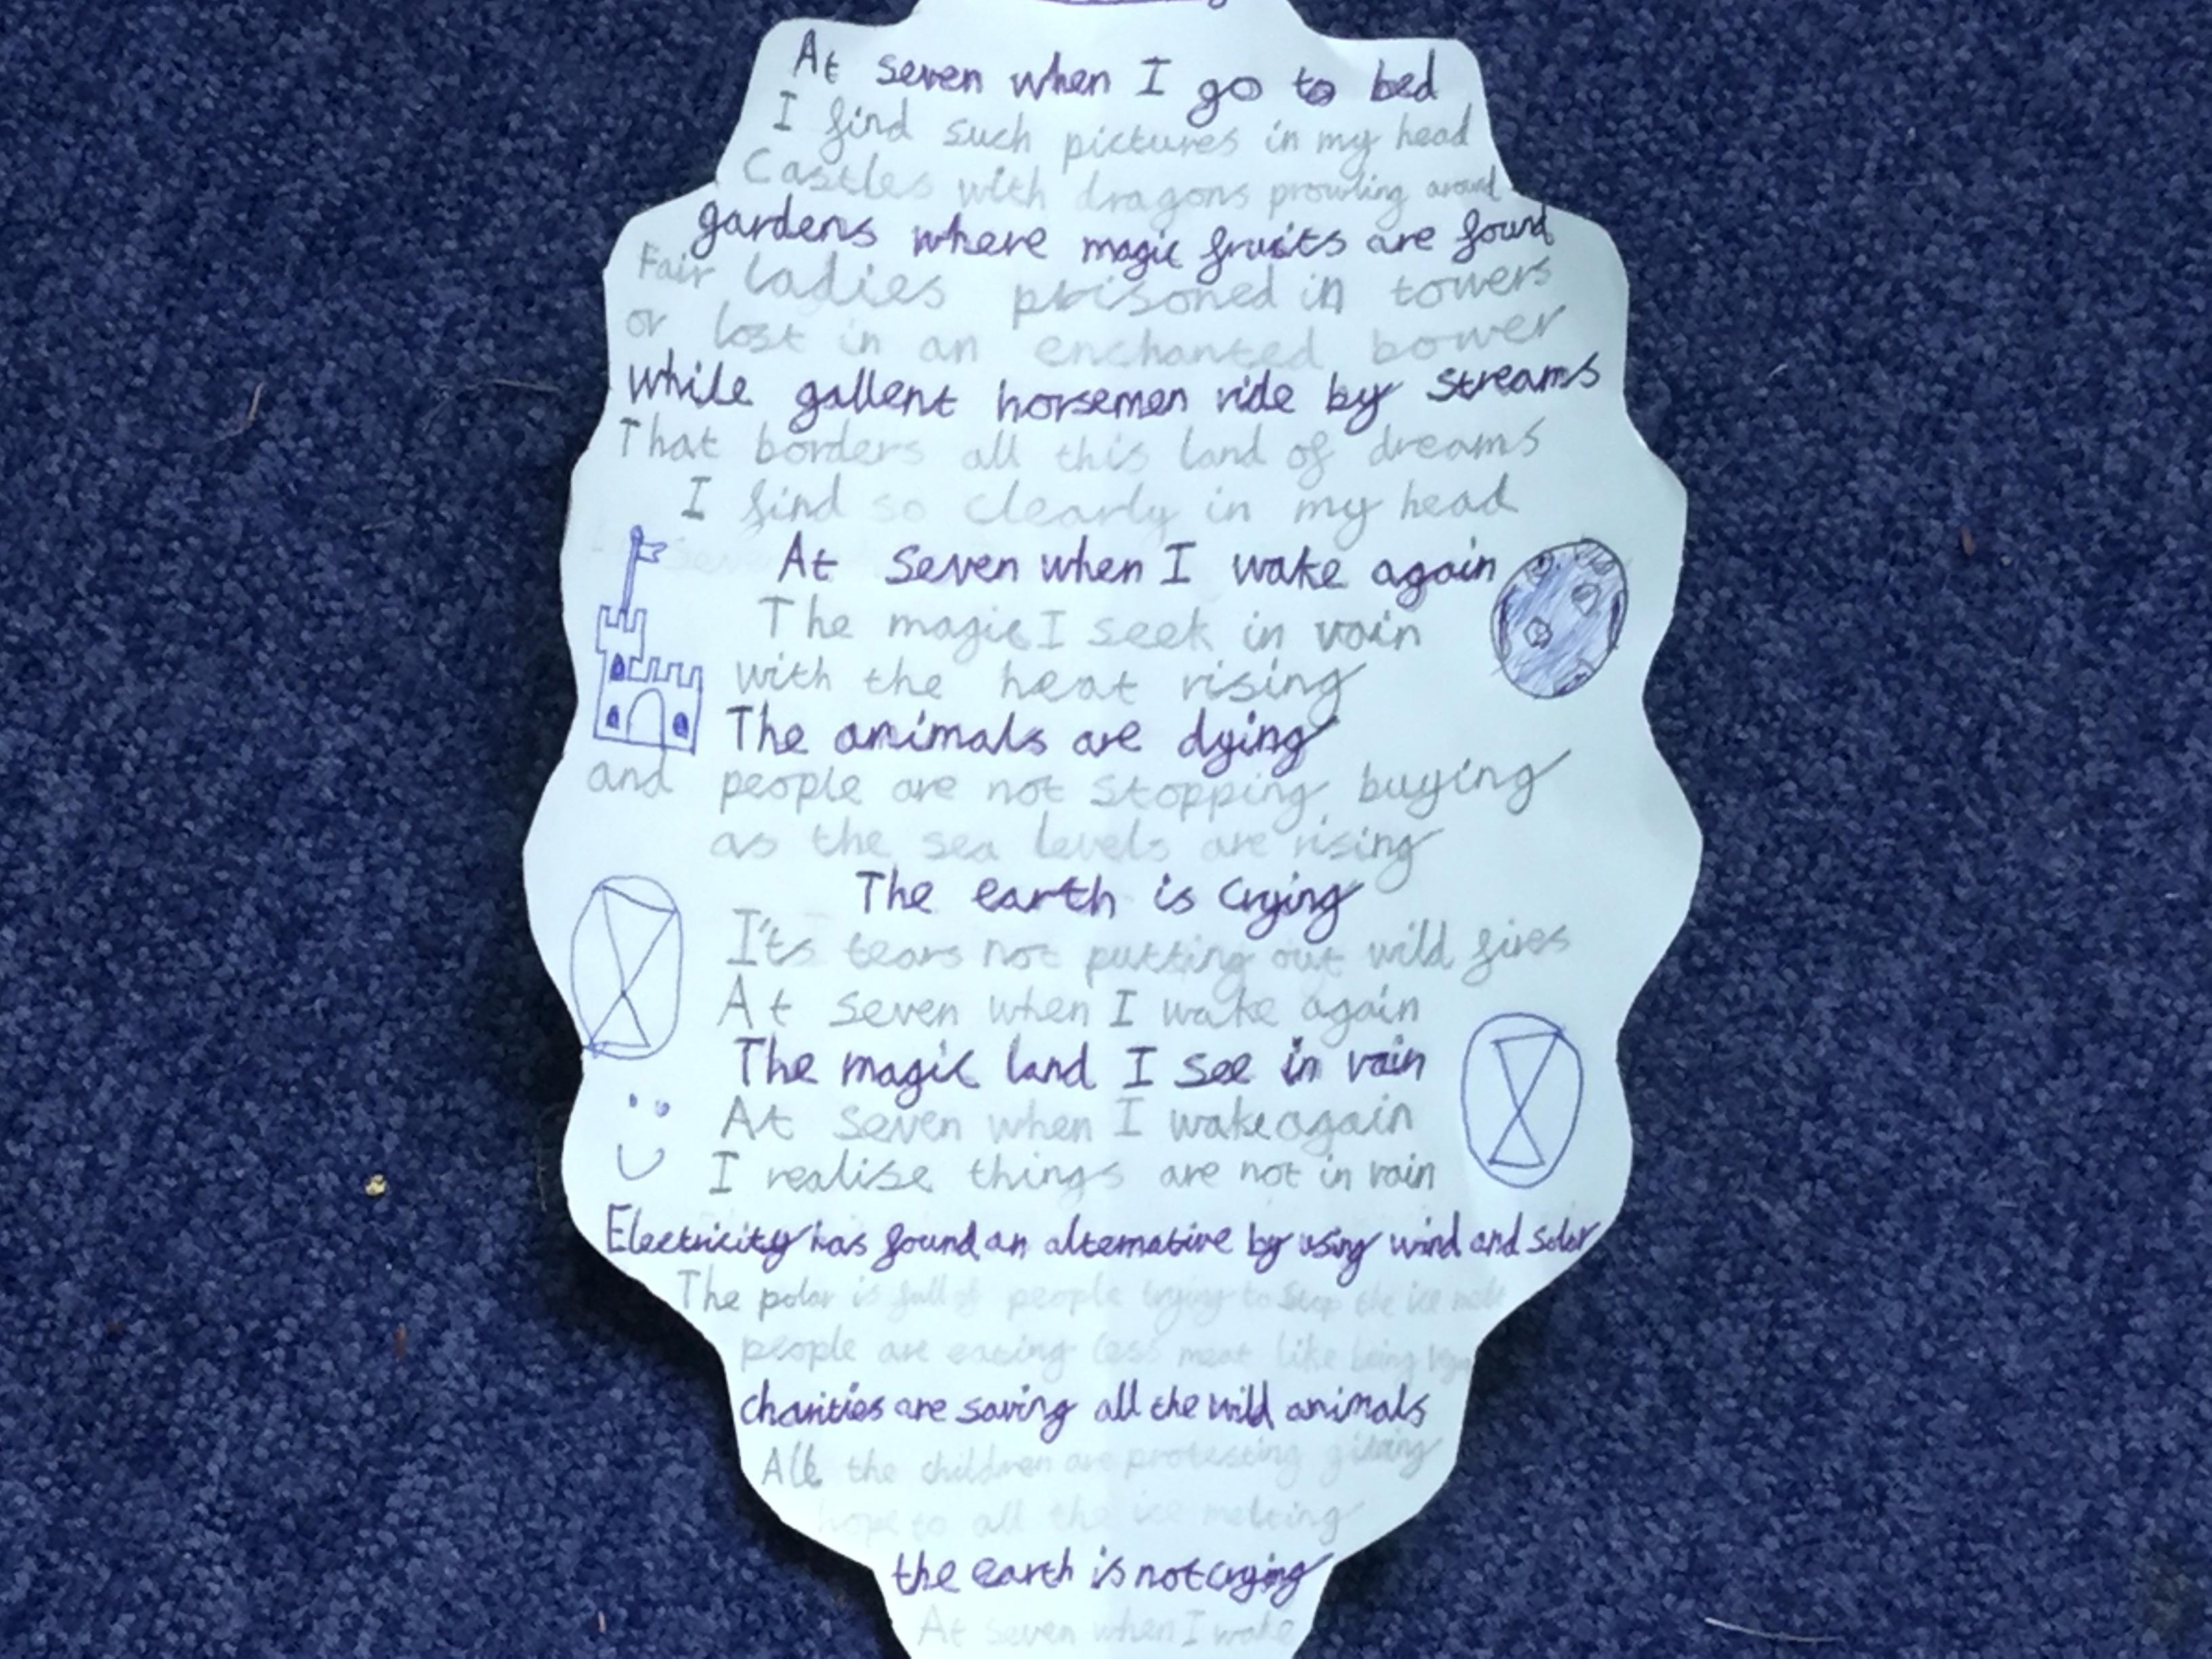 At seven when I go to bed
I find such pictures in my head
Castles with dragons prowling around
gardens where magic fruits are found
Fair ladies prisoned in towers
or lost in an enchanted bower
while gallent horsemen ride by streams
That borders all this land of dreams
I find so clearly in my head
At seven when I wake again
The magic I seek in vain
with the heat rising
The animals are dying
and people are not stopping buying
as the sea levels are rising
The earth is crying
I'ts tears not putting out wild fires
At seven when I wake again
The magic land I see in vain
At seven when I wake again
I realise things are not in vain
Electricity has found an alternative by using wind and solar
The polar is full of people trying to stop the ice melt
people are eating less meat like being
charities are saving all the wild animals
All the children are protesting giving
hope to all the ice melting
the earth is not crying
At seven when I wake